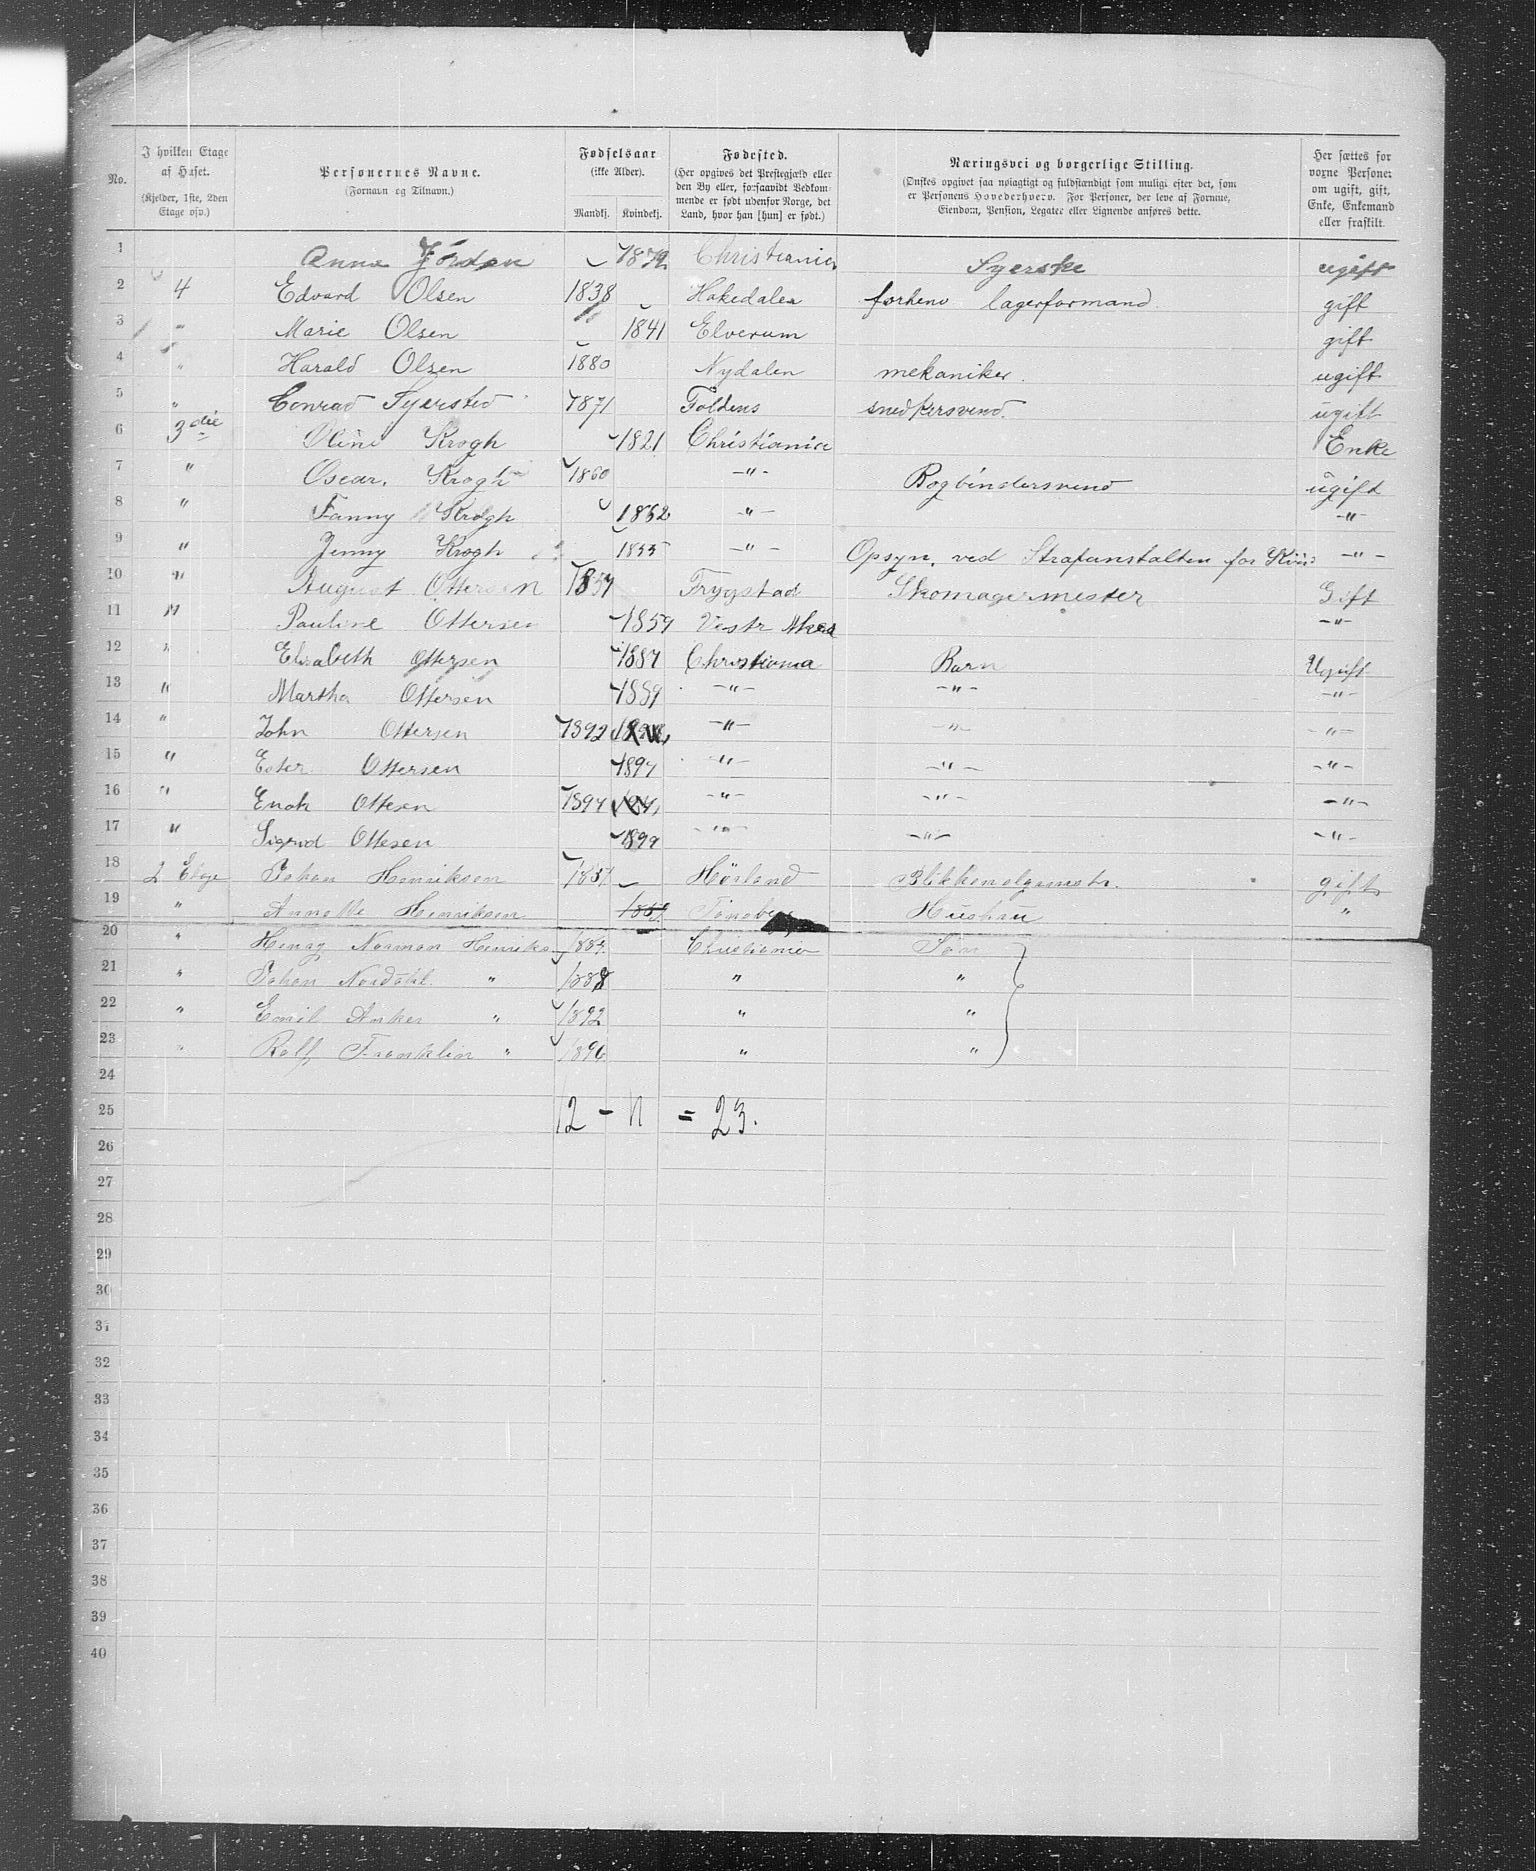 No. | I hvilken Etage af Huset. (Kjelder, 1ste, 2den Etage osv.) | Personernes Navne. (Fornavn og Tilnavn.) | Fødselsaar (ikke Alder). Mandkj. Kvindekj. | Fødested. (Her opgives det Prestegjæld eller den By eller, forsaavidt Vedkommende er født udenfor Norge, det Land, hvor han [hun] er født.) | Næringsvei og borgerlige Stilling. (Ønskes opgivet saa nøiagtigt og fuldstændigt som muligt efter det, som er Personens Hovederhverv. For Personer, der leve af Formue, Eiendom, Pension, Legater eller Lignende anføres dette.) | Her sættes for voxne Personer om ugift, gift, Enke, Enkemand eller fraskilt.
1 Anna 1879 Christiania Syerske ugift
2 4 Edvard Olsen 1838 Hakedalen forhenv lagerformand. gift
3 " Marie Olsen 1841 Elverum gift
4 " Harald Olsen 1880 Nydalen mekaniker. ugift
5 " Conrad 1871 Foldens snedkersvend. ugift
6 3die Oline Krogh 1821 Christiania Enke
7 " Oscar. Krogh 1860 -"- Bogbindersvend ugift
8 " Fanny Krogh 1862 -"- -"-
9 " Jenny Krogh 1855 -"- Opsyn. ved Strafanstalten for Kvin: -"-
10 " August Ottersen 1857 Trygstad Skomagermester Gift
11 " Pauline Ottersen 1859 Vestr Aker -"-
12 " Elisabeth Ottersen 1887 Christiania Barn Ugift
13 " Martha Ottersen 1889 -"- -"- -"-
14 " John Ottersen 1892 -"- -"- -"-
15 " Ester Ottersen 1894 -"- -"- -"-
16 " Enok Ottesen 1897 -"- -"- -"-
17 " Sigrid Ottesen 1899 -"- -"- -"-
18 2 Etage Johan Henriksen Hørland gift
19 " Annette Henriksen Tønsberg Hustru "
20 " Norman Henriks Christiania Søn
21 " Johan Nordahl " 1888 " "
22 " Emil Anker " 1892 " "
23 " Rolf Franklin " 1896 " "
24
25 12 - 11 = 23.
26
27
28
29
30
31
32
33
34
35
36
37
38
39
40